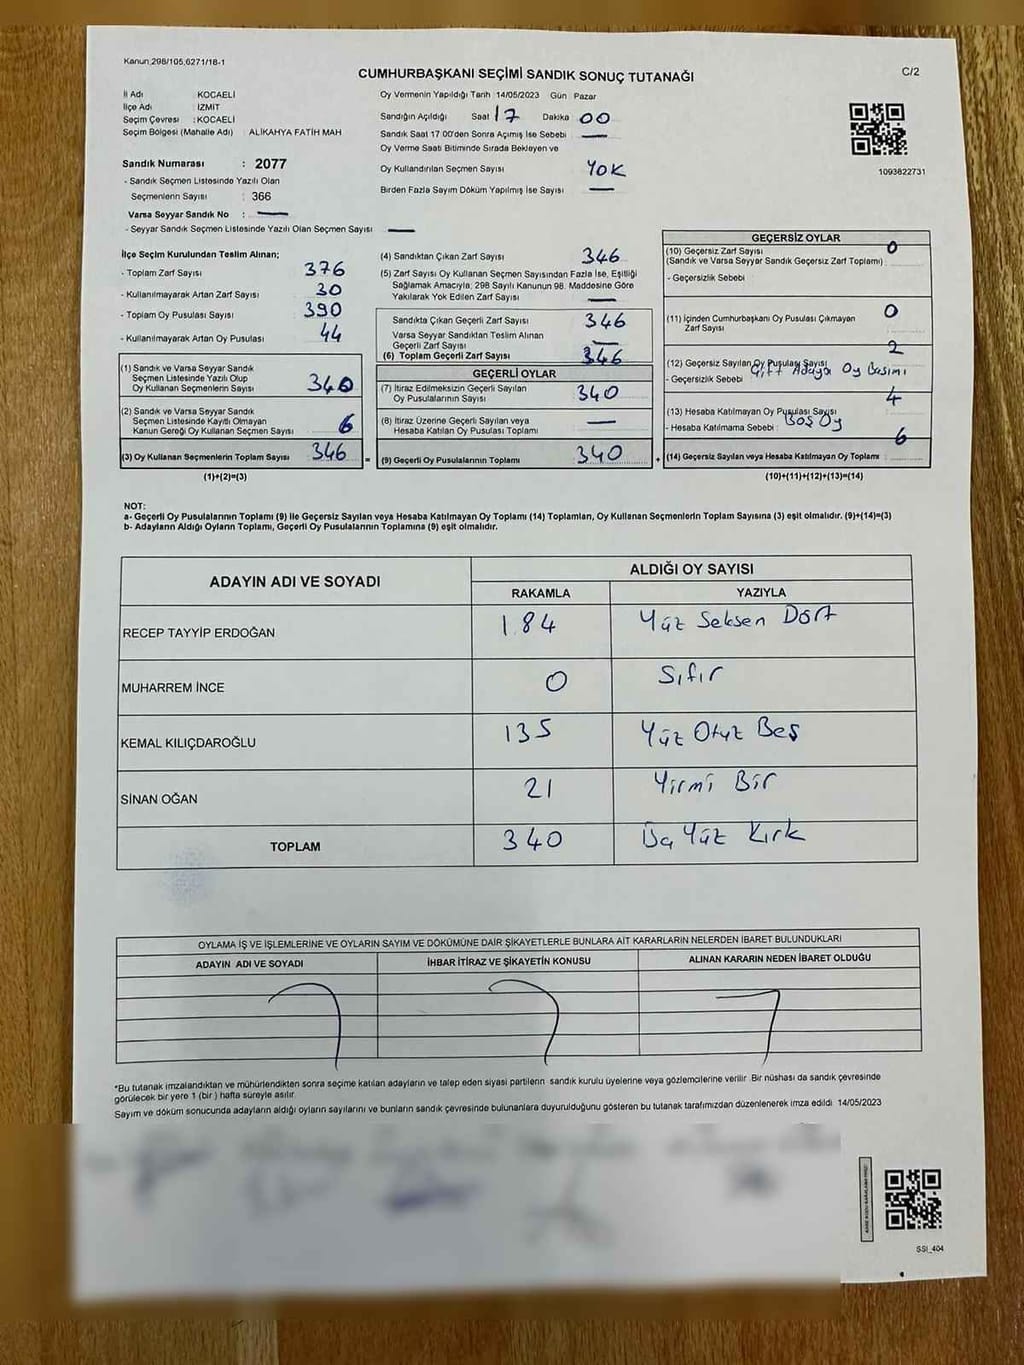 Kanun:298/105,6271/18-1
CUMHURBAŞKANI SEÇİMİ SANDIK SONUÇ TUTANAĞI
C/2
İl Adı KOCAELİ
İlçe Adı : İZMİT
Seçim Çevresi : KOCAELİ
Seçim Bölgesi (Mahalle Adı) ALİKAHYA FATİH MAH
Sandık Numarası : 2077
- Sandık Seçmen Listesinde Yazılı Olan
Seçmenlerin Sayısı : 366
Varsa Seyyar Sandık No :
- Seyyar Sandık Seçmen Listesinde Yazılı Olan Seçmen Sayısı
Oy Vermenin Yapıldığı Tarih 14/05/2023 Gün Pazar
Sandığın Açıldığı Saat 17 Dakika 00
Sandık Saat 17.00'den Sonra Açımış İse Sebebi
Oy Verme Saati Bitiminde Sırada Bekleyen ve
Oy Kullandırılan Seçmen Sayısı YOK
Birden Fazla Sayım Döküm Yapılmış İse Sayısı
1093822731
İlçe Seçim Kurulundan Teslim Alınan;
- Toplam Zarf Sayısı 376
- Kullanılmayarak Artan Zarf Sayısı 30
- Toplam Oy Pusulası Sayısı 390
- Kullanılmayarak Artan Oy Pusulası 44
(1) Sandık ve Varsa Seyyar Sandık
Seçmen Listesinde Yazılı Olup
Oy Kullanan Seçmenlerin Sayısı 340
(2) Sandık ve Varsa Seyyar Sandık
Seçmen Listesinde Kayıtlı Olmayan
Kanun Gereği Oy Kullanan Seçmen Sayısı 6
(3) Oy Kullanan Seçmenlerin Toplam Sayısı 346
(1)+(2)=(3)
(4) Sandıktan Çıkan Zarf Sayısı 346
(5) Zarf Sayısı Oy Kullanan Seçmen Sayısından Fazla İse, Eşitliği
Sağlamak Amacıyla, 298 Sayılı Kanunun 98. Maddesine Göre
Yakılarak Yok Edilen Zarf Sayısı
Sandıkta Çıkan Geçerli Zarf Sayısı 346
Varsa Seyyar Sandıktan Teslim Alınan
Geçerli Zarf Sayısı
(6) Toplam Geçerli Zarf Sayısı 346
GEÇERLİ OYLAR
(7) İtiraz Edilmeksizin Geçerli Sayılan
Oy Pusulalarının Sayısı 340
(8) İtiraz Üzerine Geçerli Sayılan veya
Hesaba Katılan Oy Pusulası Toplamı
= (9) Geçerli Oy Pusulalarının Toplamı 340
GEÇERSİZ OYLAR
(10) Geçersiz Zarf Sayısı 0
(Sandık ve Varsa Seyyar Sandık Geçersiz Zarf Toplamı)
- Geçersizlik Sebebi
(11) İçinden Cumhurbaşkanı Oy Pusulası Çıkmayan 0
Zarf Sayısı
(12) Geçersiz Sayılan Oy Pusulası Sayısı 2
- Geçersizlik Sebebi Çift Adaya Oy Basımı
(13) Hesaba Katılmayan Oy Pusulası Sayısı 4
- Hesaba Katılmama Sebebi : Boş Oy
+ (14) Geçersiz Sayılan veya Hesaba Katılmayan Oy Toplamı 6
(10)+(11)+(12)+(13)=(14)
NOT:
a- Geçerli Oy Pusulalarının Toplamı (9) ile Geçersiz Sayılan veya Hesaba Katılmayan Oy Toplamı (14) Toplamları, Oy Kullanan Seçmenlerin Toplam Sayısına (3) eşit olmalıdır. (9)+(14)=(3)
b- Adayların Aldığı Oyların Toplamı, Geçerli Oy Pusulalarının Toplamına (9) eşit olmalıdır.
ADAYIN ADI VE SOYADI
ALDIĞI OY SAYISI
RAKAMLA YAZIYLA
RECEP TAYYİP ERDOĞAN 184 Yüz Seksen Dört
MUHARREM İNCE 0 Sıfır
KEMAL KILIÇDAROĞLU 135 Yüz Otuz Beş
SİNAN OĞAN 21 Yirmi Bir
TOPLAM 340 Üç Yüz Kırk
OYLAMA İŞ VE İŞLEMLERİNE VE OYLARIN SAYIM VE DÖKÜMÜNE DAİR ŞİKAYETLERLE BUNLARA AİT KARARLARIN NELERDEN İBARET BULUNDUKLARI
ADAYIN ADI VE SOYADI İHBAR İTİRAZ VE ŞİKAYETİN KONUSU ALINAN KARARIN NEDEN İBARET OLDUĞU
*Bu tutanak imzalandıktan ve mühürlendikten sonra seçime katılan adayların ve talep eden siyasi partilerin sandık kurulu üyelerine veya gözlemcilerine verilir. Bir nüshası da sandık çevresinde
görülecek bir yere 1 (bir) hafta süreyle asılır.
Sayım ve döküm sonucunda adayların aldığı oyların sayılarını ve bunların sandık çevresinde bulunanlara duyurulduğunu gösteren bu tutanak tarafımızdan düzenlenerek imza edildi. 14/05/2023
SSİ_404